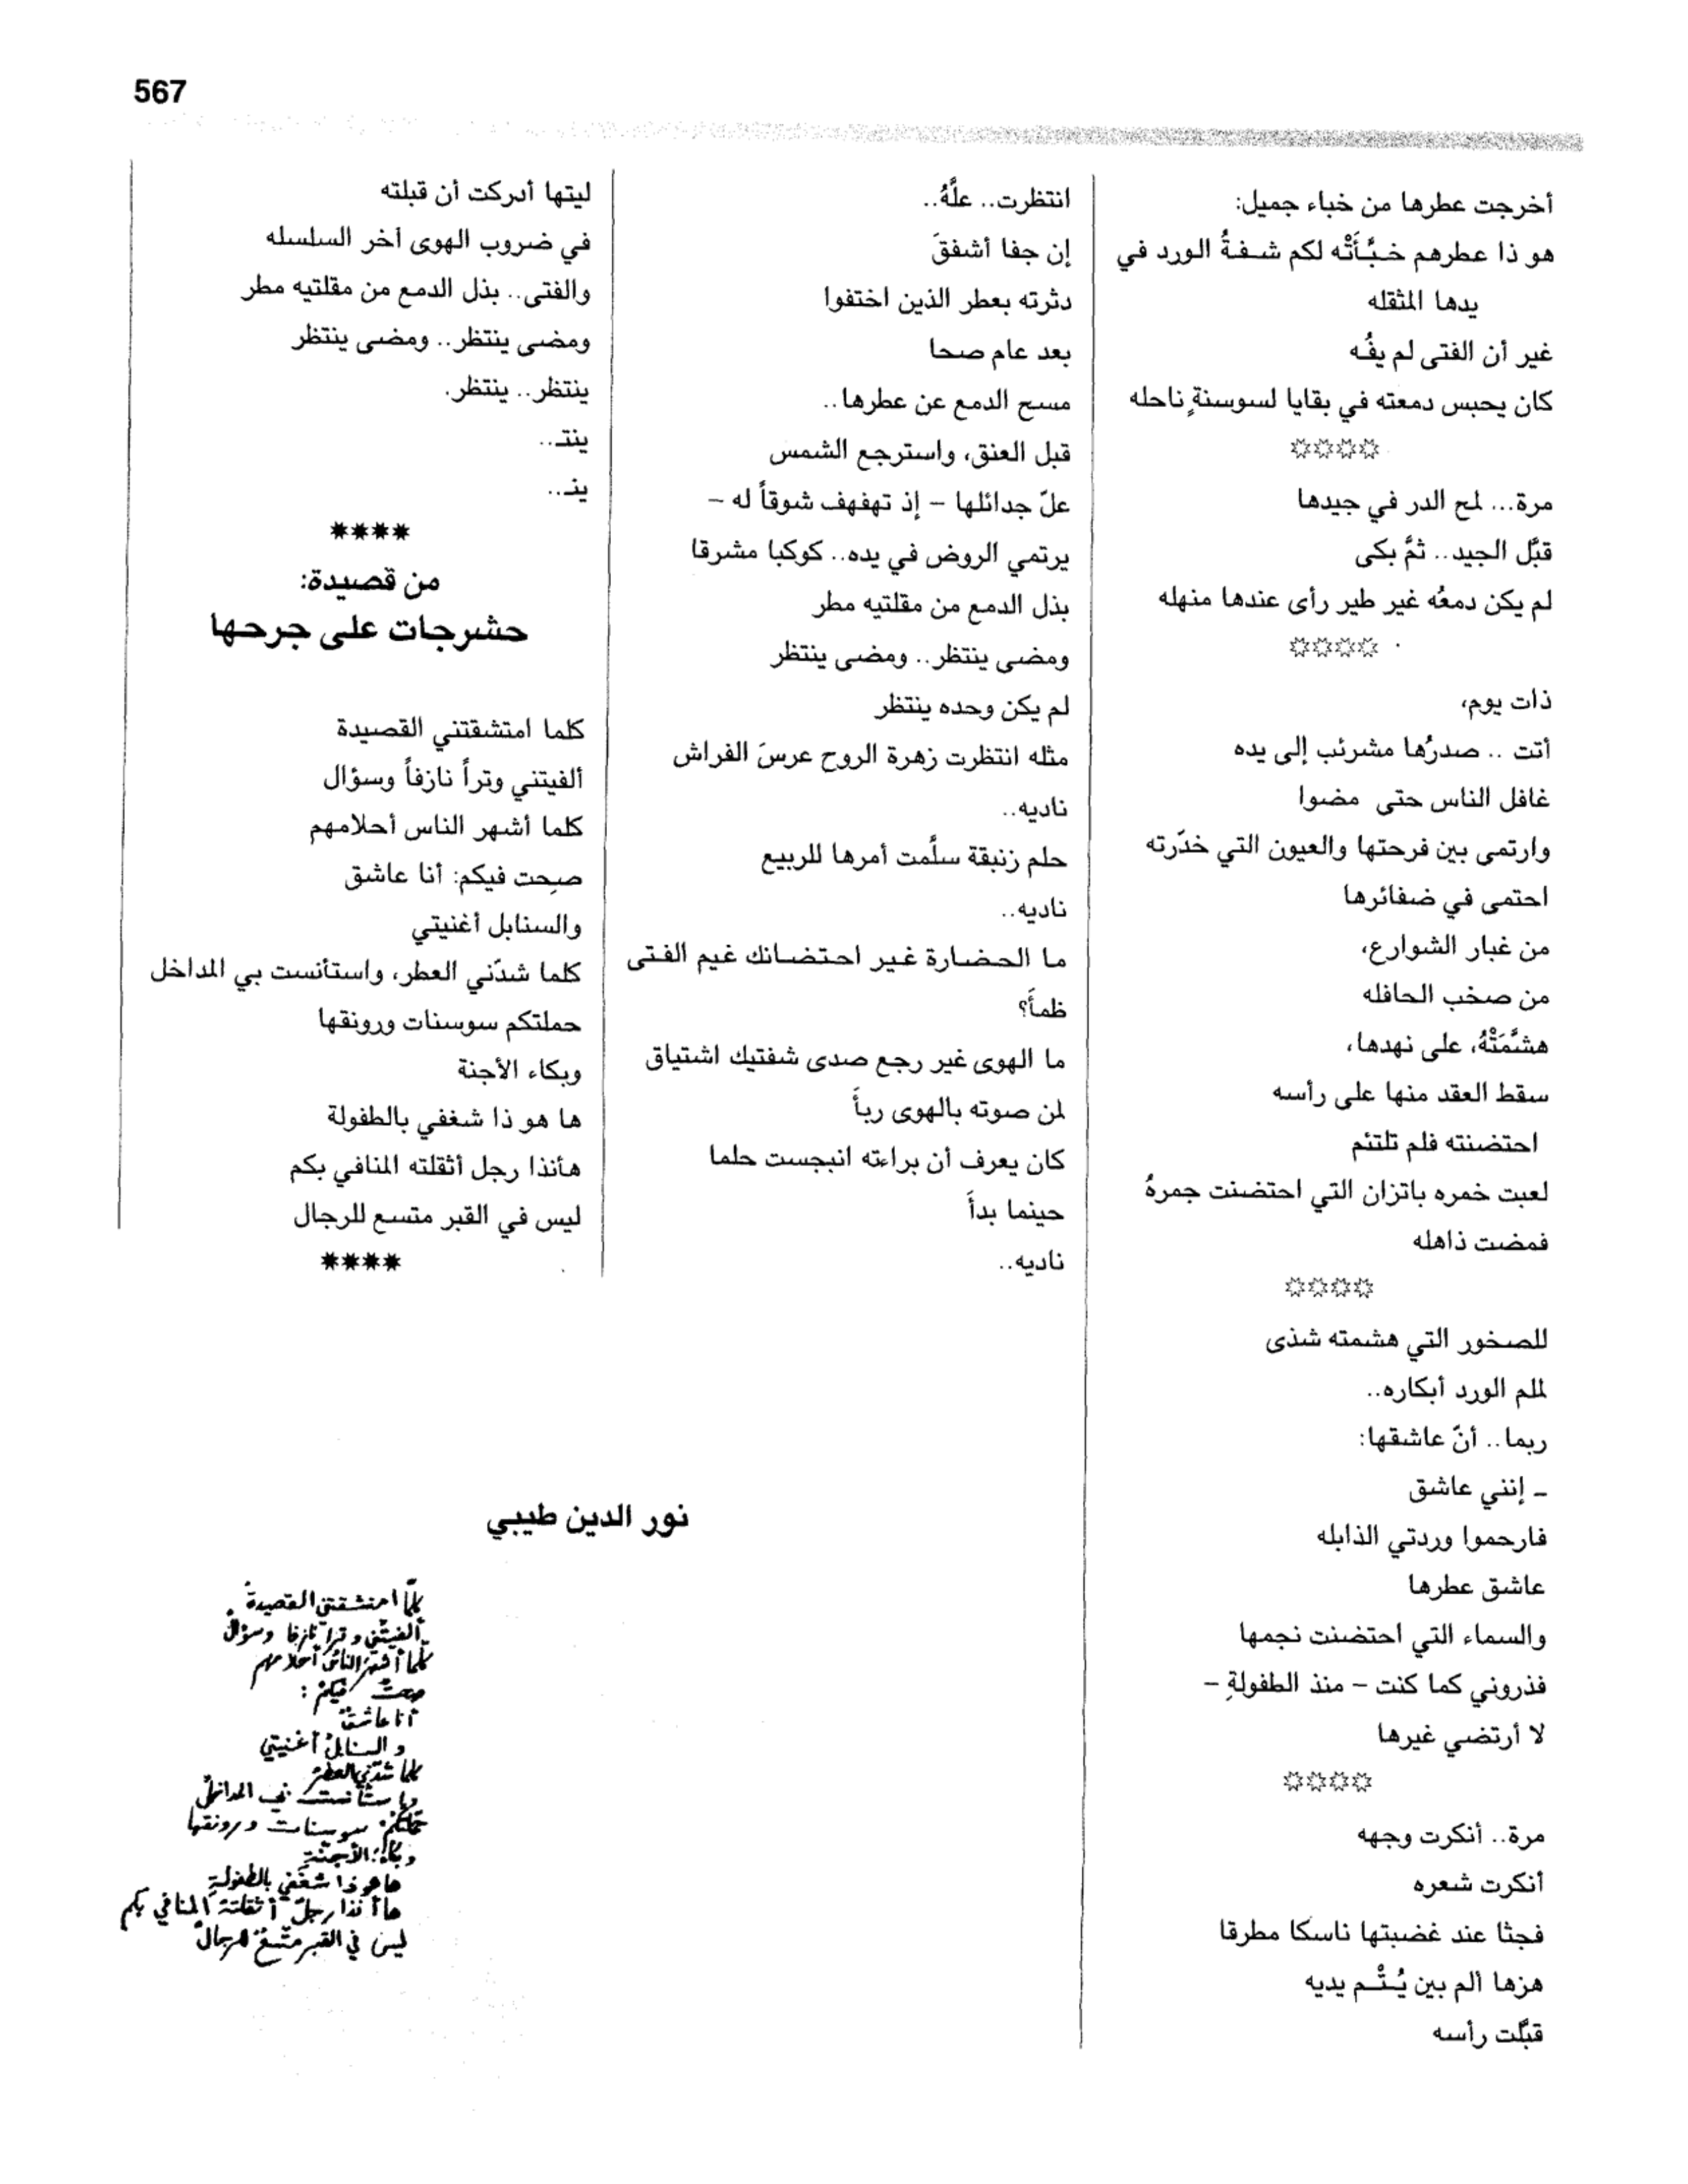 567
أخرجت عطرها من خباء جميل:
هو ذا عطرهم خبَّأَتْه لكم شفةُ الورد في
يدها المثقله
غير أن الفتى لم يفُه
كان يحبس دمعته في بقايا لسوسنةٍ ناحله
****
مرة... لمح الدر في جيدها
قبَّل الجيد.. ثمَّ بكى
لم يكن دمعُه غير طير رأى عندها منهله
****
ذات يوم،
أتت .. صدرُها مشرئب إلى يده
غافل الناس حتى مضوا
وارتمى بين فرحتها والعيون التي خدّرته
احتمى في ضفائرها
من غبار الشوارع،
من صخب الحافله
هشَّمَتْهُ، على نهدها،
سقط العقد منها على رأسه
احتضنته فلم تلتئم
لعبت خمره باتزان التي احتضنت جمرهُ
فمضت ذاهله
****
للصخور التي هشمته شذى
لملم الورد أبكاره..
ربما.. أنّ عاشقها:
ـ إنني عاشق
فارحموا وردتي الذابله
عاشق عطرها
والسماء التي احتضنت نجمها
فذروني كما كنت – منذ الطفولةِ –
لا أرتضي غيرها
****
مرة.. أنكرت وجهه
أنكرت شعره
فجثا عند غضبتها ناسكا مطرقا
هزها ألم بين يُـتْـم يديه
قبلّت رأسه
انتظرت.. علَّهُ..
إن جفا أشفقَ
دثرته بعطر الذين اختفوا
بعد عام صحا
مسح الدمع عن عطرها..
قبل العنق، واسترجع الشمس
علّ جدائلها – إذ تهفهف شوقاً له –
يرتمي الروض في يده.. كوكبا مشرقا
بذل الدمع من مقلتيه مطر
ومضى ينتظر.. ومضى ينتظر
لم يكن وحده ينتظر
مثله انتظرت زهرة الروح عرسَ الفراش
ناديه..
حلم زنبقة سلَّمت أمرها للربيع
ناديه..
ما الحضارة غير احتضانك غيم الفتى
ظمأَ؟
ما الهوى غير رجع صدى شفتيك اشتياق
لمن صوته بالهوى ربأَ
كان يعرف أن براءته انبجست حلما
حينما بدأَ
ناديه..
ليتها أدركت أن قبلته
في ضروب الهوى آخر السلسله
والفتى.. بذل الدمع من مقلتيه مطر
ومضى ينتظر.. ومضى ينتظر
ينتظر.. ينتظر.
ينتـ..
ينـ..
****
من قصيدة:
حشرجات على جرحها
كلما امتشقتني القصيدة
ألفيتني وتراً نازفاً وسؤال
كلما أشهر الناس أحلامهم
صِحت فيكم: أنا عاشق
والسنابل أغنيتي
كلما شدّني العطر، واستأنست بي المداخل
حملتكم سوسنات ورونقها
وبكاء الأجنة
ها هو ذا شغفي بالطفولة
هأنذا رجل أثقلته المنافي بكم
ليس في القبر متسع للرجال
****
نور الدين طيبي
كلّما امتشقتني القصيدةُ
ألفيتُني وترا نازفا وسؤالْ
كلّما أشهرَ الناسُ أحلامهم
صحتُ فيكمْ :
أنا عاشقٌ
والسنابلُ أغنيتي
كلما شدّني العطرُ
واستأنست بي المداخلُ
حملتكمُ سوسنات ورونقها
وبكاءَ الأجنّةِ
ها هو ذا شغفي بالطفولةِ
ها أنذا رجلٌ أثقلتهُ المنافي بكم
ليس في القبر متّسعٌ للرجالْ